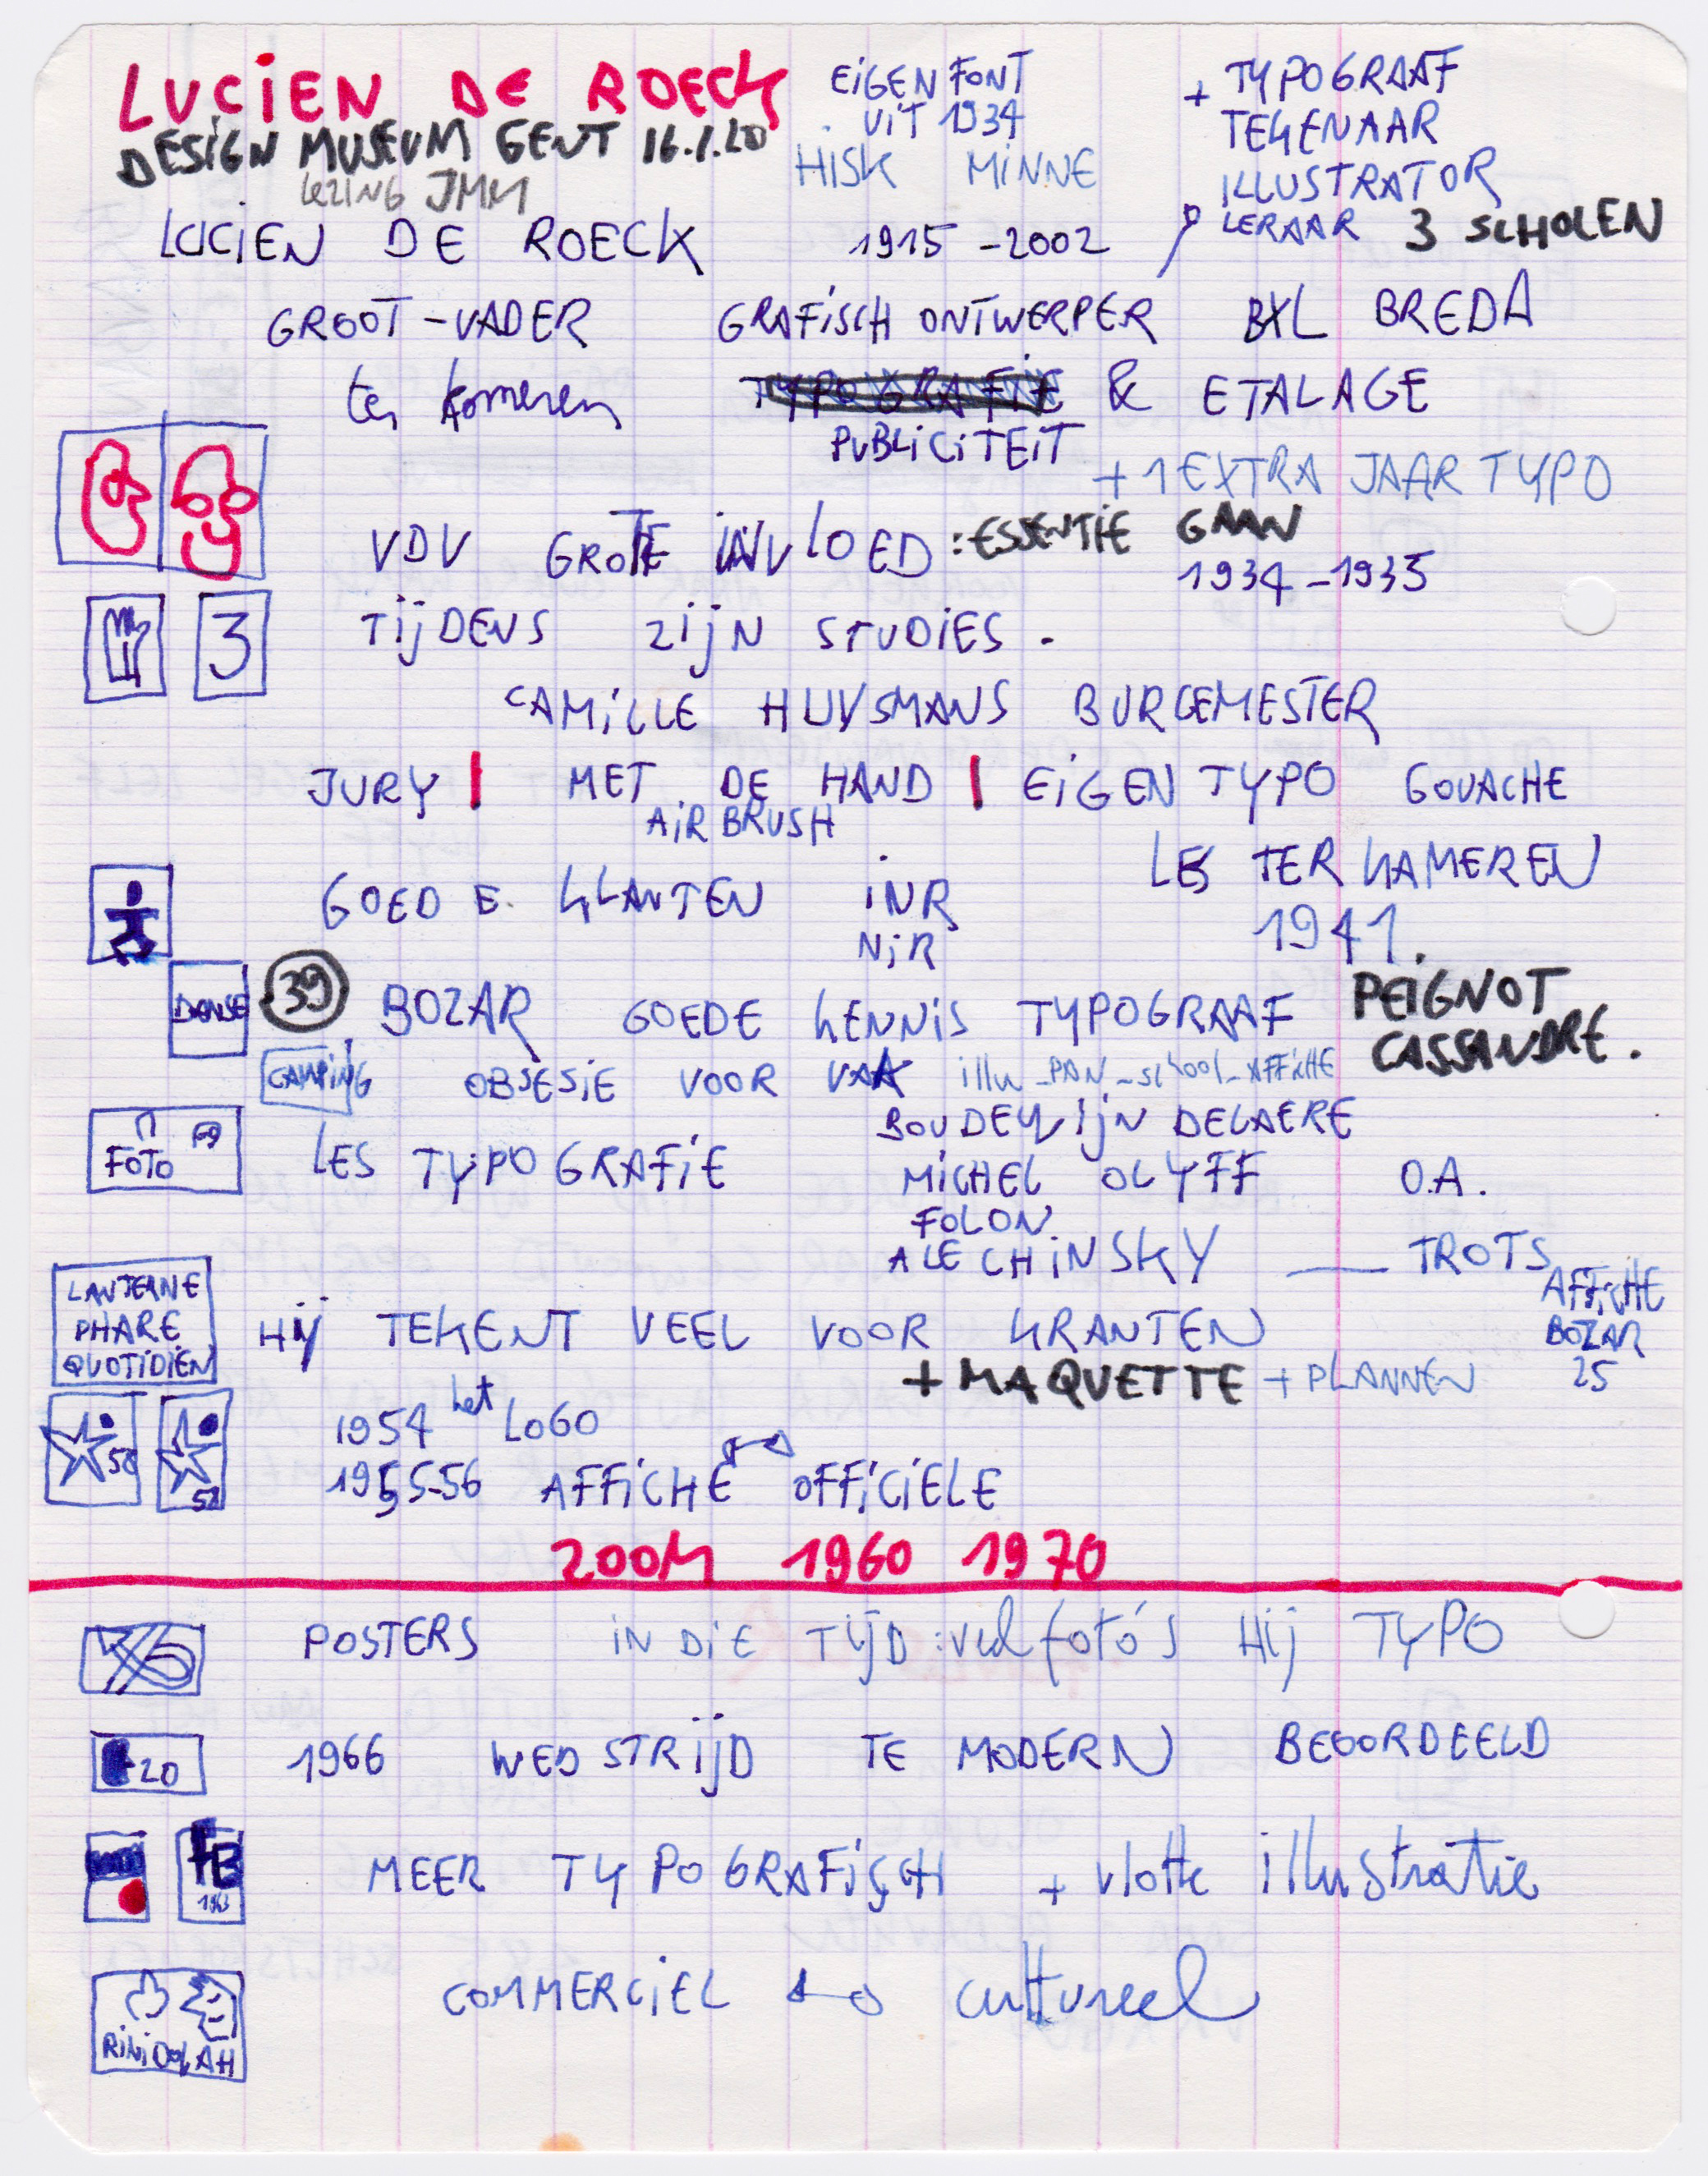 LUCIEN DE ROECK
EIGEN FONT
UIT 1934
+ TYPOGRAAF
TEKENAAR
ILLUSTRATOR
LERAAR 3 SCHOLEN
DESIGN MUSEUM GENT 16.1.20
HISK MINNE
LEZING JMM
LUCIEN DE ROECK 1915-2002
GROOT-VADER GRAFISCH ONTWERPER BXL BREDA
ter kameren TYPOGRAFIE & ETALAGE
PUBLICITEIT
+ 1 EXTRA JAAR TYPO
VDV GROTE INVLOED : ESSENTIE GAAN
1934-1935
3
TIJDENS ZIJN STUDIES.
CAMILLE HUYSMANS BURGEMESTER
JURY | MET DE HAND | EIGEN TYPO GOUACHE
AIRBRUSH
LES TER KAMEREN
GOED E. KLANTEN INR
NIR
1941.
DANSE
39 BOZAR GOEDE KENNIS TYPOGRAAF PEIGNOT
CASSANDRE.
CAMPING OBSESIE VOOR VAK illu-PAN-school-AFFICHE
BOUDEWIJN DELAERE
FOTO LES TYPOGRAFIE MICHEL OLYFF O.A.
FOLON
ALECHINSKY — TROTS
AFFICHE
BOZAR
25
LANTERNE
PHARE
QUOTIDIEN
HIJ TEKENT VEEL VOOR KRANTEN
+ MAQUETTE + PLANNEN
58 58
1954 het LOGO
1955-56 AFFICHE OFFICIELE
ZOOM 1960 1970
POSTERS IN DIE TIJD : veel foto's HIJ TYPO
20 1966 WEDSTRIJD TE MODERN BEOORDEELD
1963
MEER TYPOGRAFISCH + vlotte illustratie
COMMERCIEL cultureel